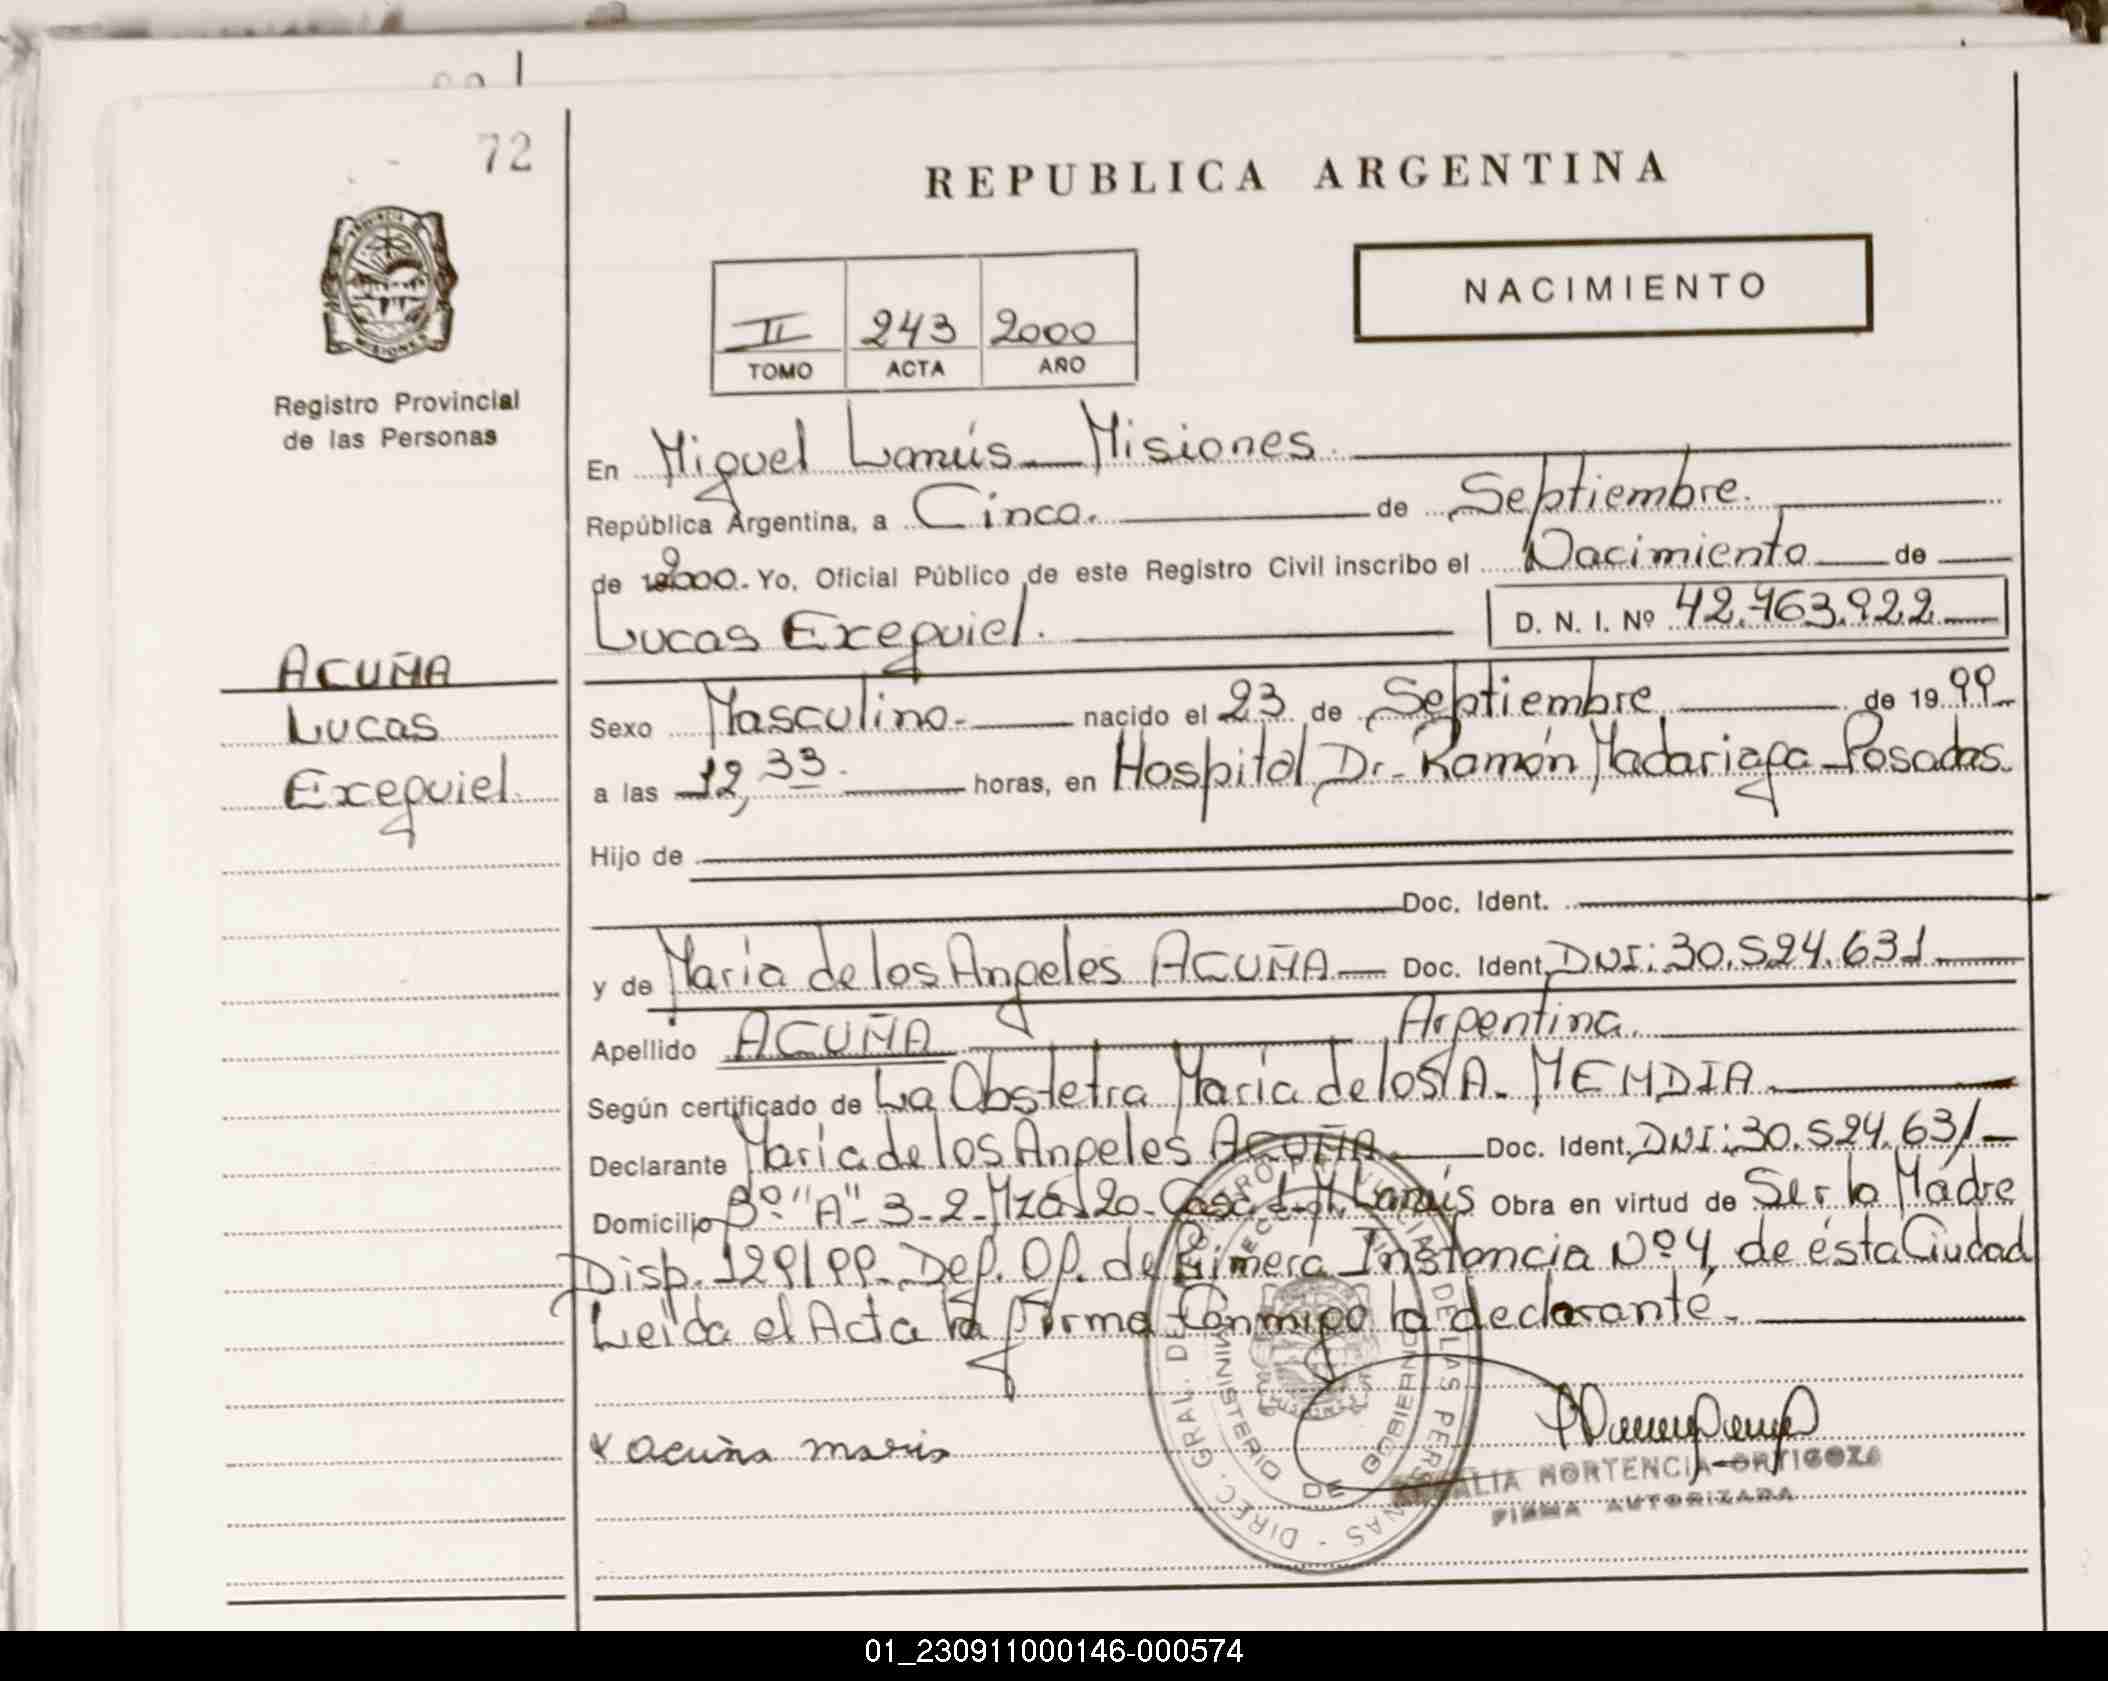 72
REPUBLICA ARGENTINA
NACIMIENTO
II 243 2000
TOMO ACTA AÑO
PROVINCIA DE
MISIONES
Registro Provincial
de las Personas
En Miguel Lanús - Misiones.
República Argentina, a Cinco. de Septiembre.
de 2000. Yo, Oficial Público de este Registro Civil inscribo el Nacimiento de
Lucas Exequiel. D. N. I. Nº 42.463.922
ACUÑA
Lucas
Exequiel.
Sexo Masculino. nacido el 23 de Septiembre de 1999
a las 12,33. horas, en Hospital Dr. Ramón Madariaga Posadas.
Hijo de
Doc. Ident.
y de María de los Angeles ACUÑA Doc. Ident. DNI: 30.524.631
Apellido ACUÑA Argentina.
Según certificado de La Obstetra María de los A. MENDIA
Declarante María de los Angeles ACUÑA Doc. Ident. DNI: 30.524.631
Domicilio Bº "A" 3-2-Mza 120-Casa M. Lanús Obra en virtud de Ser la Madre
Disp. 129/99. Def. Of. de Primera Instancia Nº 4, de ésta Ciudad
Leída el Acta la firma conmigo la declarante.
x acuña maria
DIREC. GRAL. DEL REGISTRO PROVINCIAL DE LAS PERSONAS
MINISTERIO DE GOBIERNO
HORTENCIA ORTIGOZA
FIRMA AUTORIZADA
01_230911000146-000574